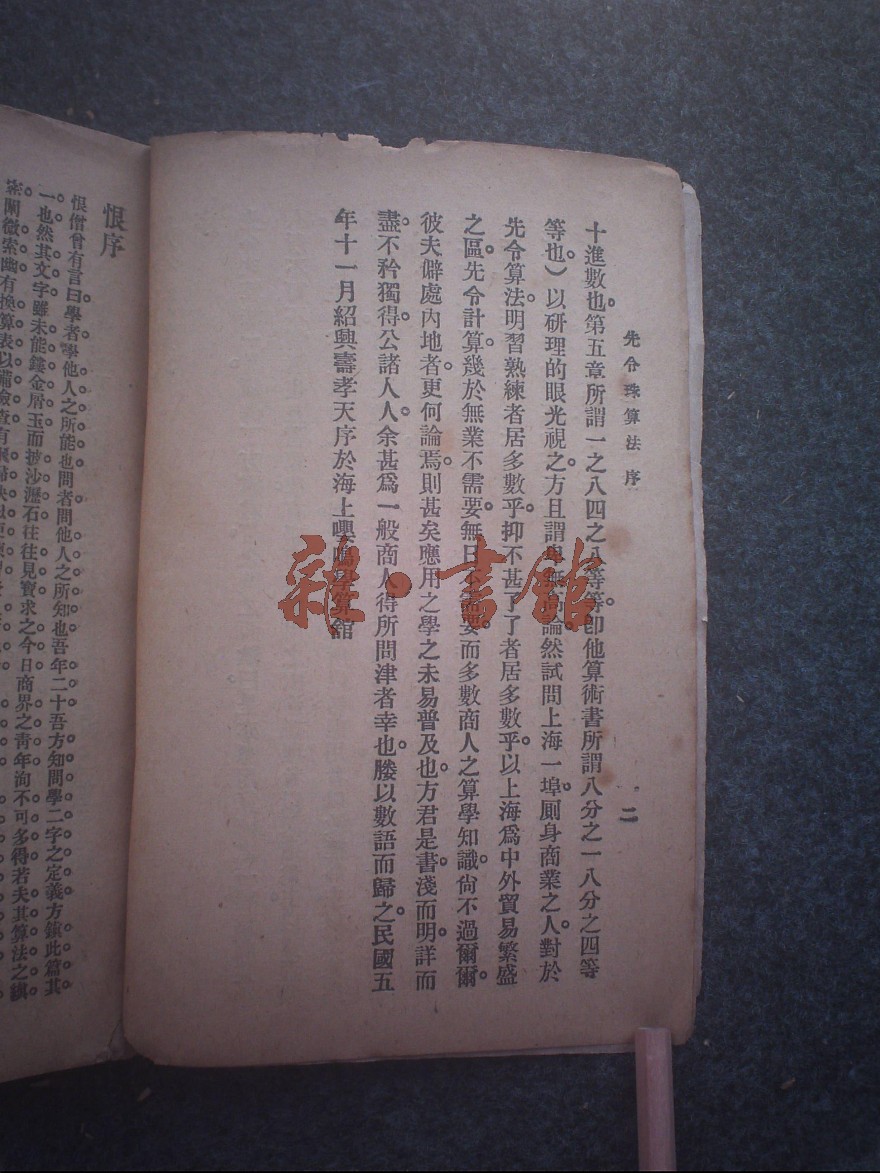 先令珠算法 序
二
十進數也。第五章所謂一之八四之八等等。卽他算術書所謂八分之一八分之四等
等也。）以研理的眼光視之。方且謂無論。然試問上海一埠。厠身商業之人。對於
先令算法。明習熟練者居多數乎。抑不甚了了者居多數乎。以上海爲中外貿易繁盛
之區。先令計算。幾於無業不需要。無日不需要。而多數商人之算學知識。尙不過爾爾。
彼夫僻處內地者。更何論焉。則甚矣應用之學之未易普及也。方君是書。淺而明。詳而
盡。不矜獨得。公諸人人。余甚爲一般商人得所問津者幸也。媵以數語而歸之。民國五
年十一月紹興壽孝天序於海上學算舘
雜·書館
恨序
恨僧曾有言曰。學者學他人之所能也。問者問他人之所知也。吾年二十吾方知問學二字之定義。方鎮此篇其
一也。然其文字雖未能鏤金屑玉。而披沙瀝石往往見寶。求之今日商界之靑年洵不可多得。若夫其算法之縝
密闡微索幽有換算表以備檢查有